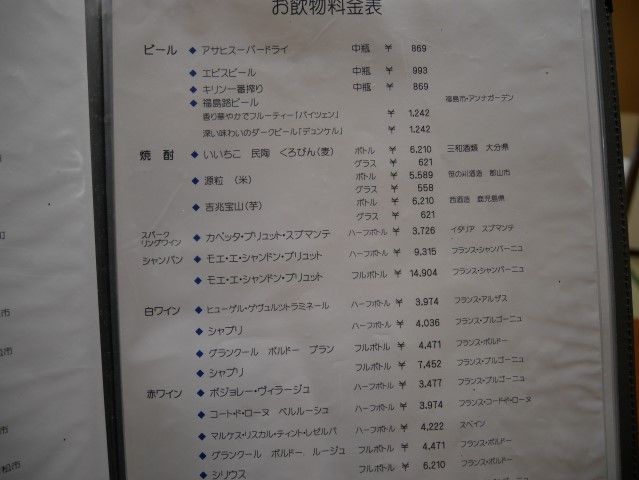 お飲物料金表
ビール ◆ アサヒスーパードライ 中瓶 ¥ 869
◆ エビスビール 中瓶 ¥ 993
◆ キリン一番搾り 中瓶 ¥ 869
◆ 福島路ビール 福島市・アンナガーデン
香り華やかでフルーティー「バイツェン」 ¥ 1,242
深い味わいのダークビール「デュンケル」 ¥ 1,242
焼酎 ◆ いいちこ 民陶 くろびん(麦) ボトル ¥ 6,210 三和酒類 大分県
グラス ¥ 621
◆ 源粒 (米) ボトル ¥ 5,589 笹の川酒造 郡山市
グラス ¥ 558
◆ 吉兆宝山(芋) ボトル ¥ 6,210 西酒造 鹿児島県
グラス ¥ 621
スパークリングワイン ◆ カペッタ・ブリュット・スプマンテ ハーフボトル ¥ 3,726 イタリア スプマンテ
シャンパン ◆ モエ・エ・シャンドン・ブリュット ハーフボトル ¥ 9,315 フランス・シャンパーニュ
◆ モエ・エ・シャンドン・ブリュット フルボトル ¥ 14,904 フランス・シャンパーニュ
白ワイン ◆ ヒューゲル・ゲヴュルツトラミネール ハーフボトル ¥ 3,974 フランス・アルザス
◆ シャブリ ハーフボトル ¥ 4,036 フランス・ブルゴーニュ
◆ グランクール ボルドー ブラン フルボトル ¥ 4,471 フランス・ボルドー
◆ シャブリ フルボトル ¥ 7,452 フランス・ブルゴーニュ
赤ワイン ◆ ボジョレー・ヴィラージュ ハーフボトル ¥ 3,477 フランス・ブルゴーニュ
◆ コート・ド・ローヌ ベルルーシュ ハーフボトル ¥ 3,974 フランス・コート・ド・ローヌ
◆ マルケス・リスカル・ティント・レゼルバ ハーフボトル ¥ 4,222 スペイン
◆ グランクール ボルドー ルージュ フルボトル ¥ 4,471 フランス・ボルドー
◆ シリウス フルボトル ¥ 6,210 フランス・ボルドー